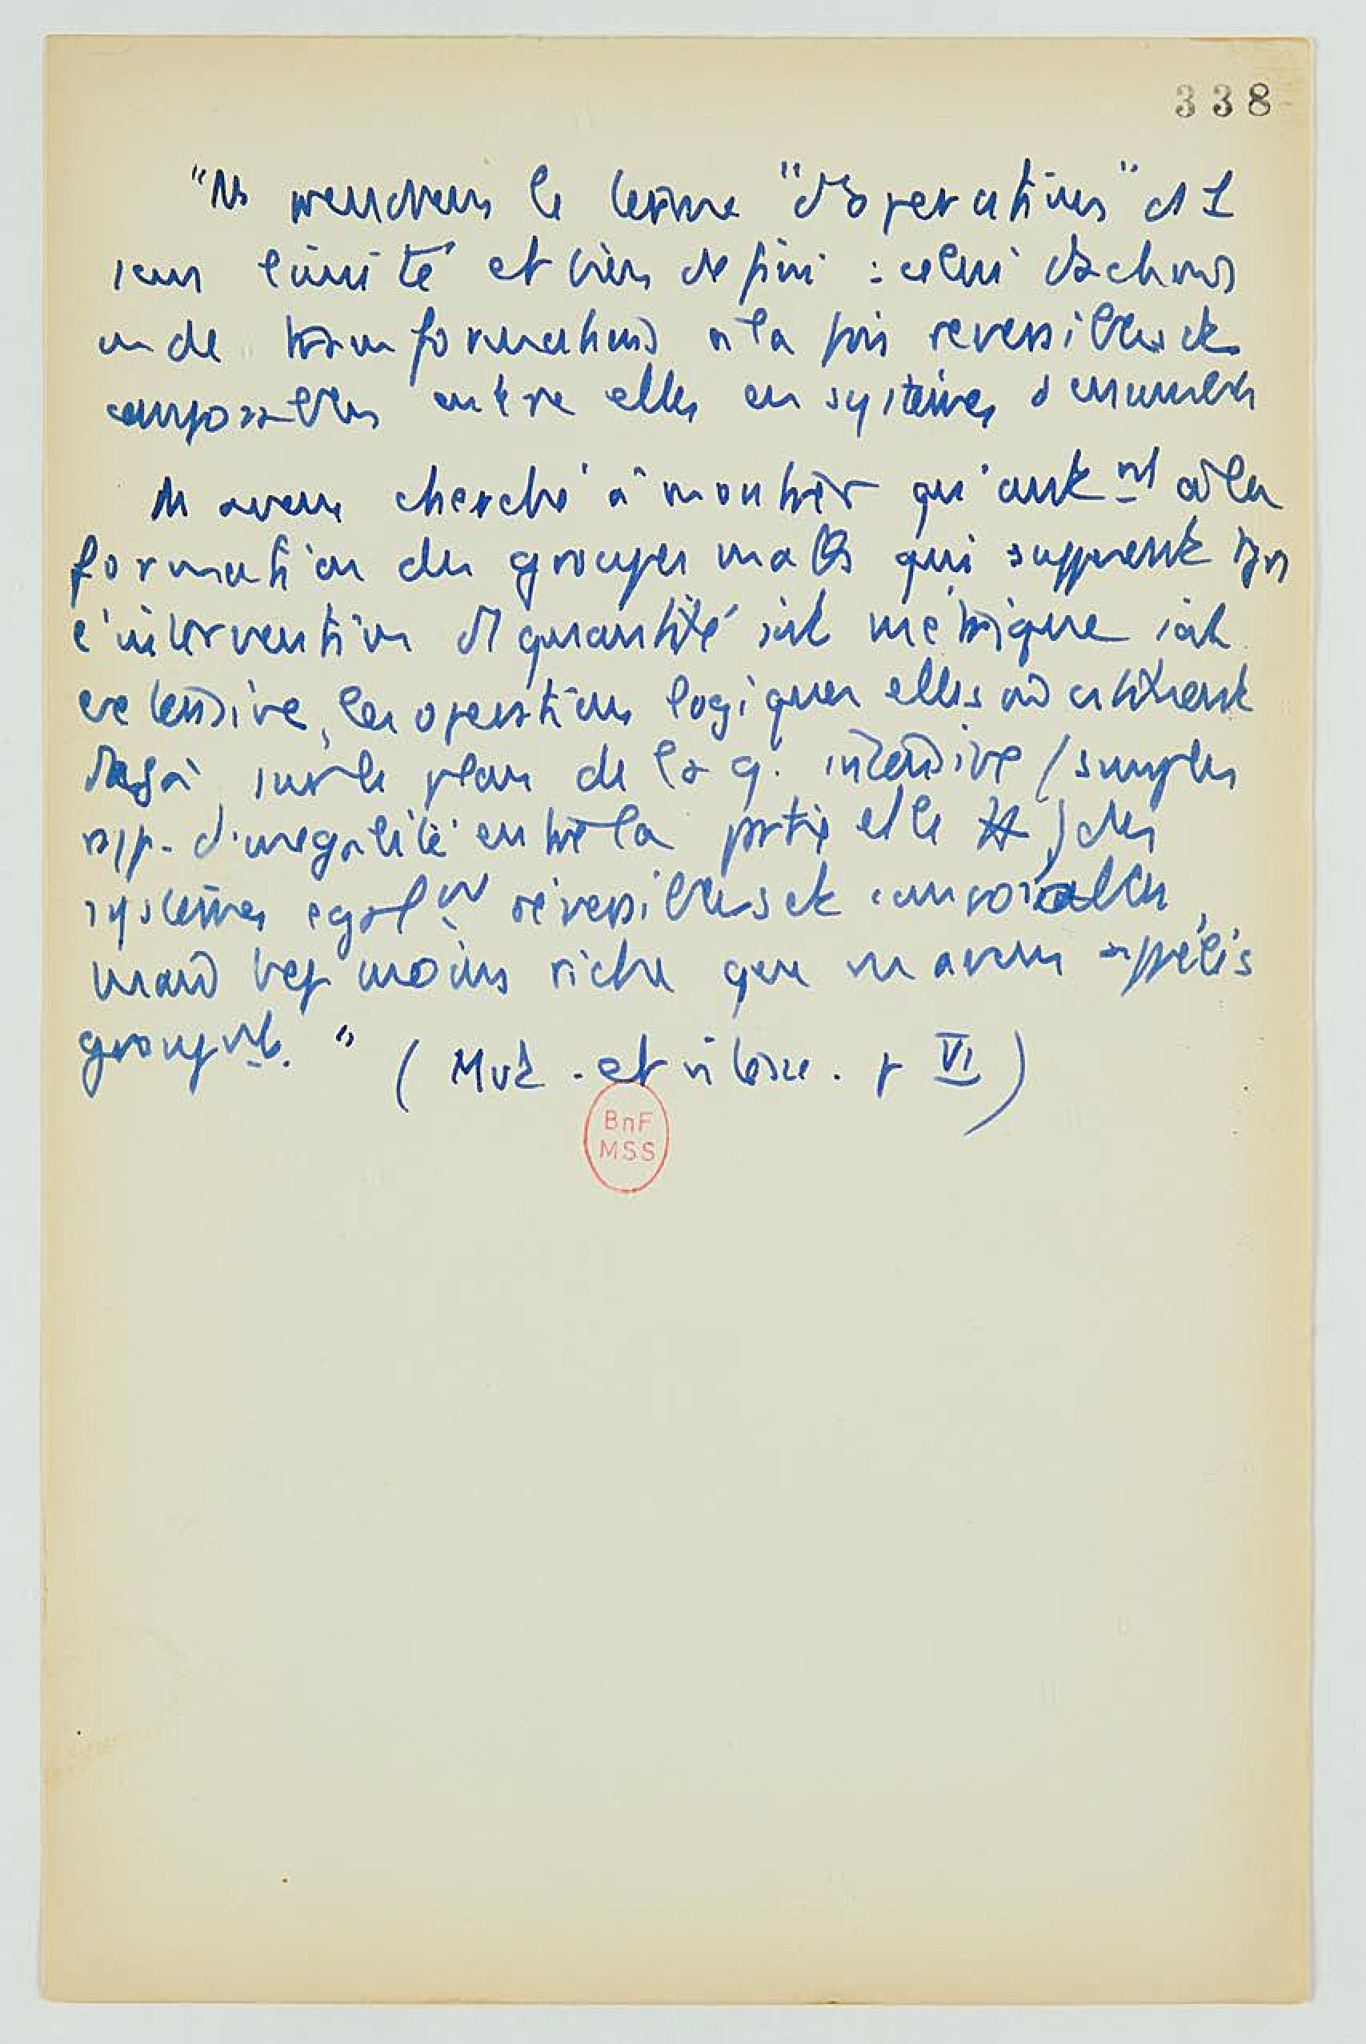 338
"Ns prendrons le terme "d'operations" ds 1
sens limité et bien defini : celui d'actions
ou de transformations à la fois reversibles et
composables entre elles en systèmes d'ensembles
Ns avons cherché à montrer qu'antért à la
formation des groupes maths qui supposent tjrs
l'intervention d'1 quantité soit métrique soit
extensive, les operations logiques elles constituent
déjà sur le plan de la q. intensive (simples
rapp. d'inegalité entre la partie et le tt) des
systèmes egalnt réversibles et composables,
mais bcp moins riches que ns avons appelés
groupnts." (Mvt. et vitesse. p VI)
BnF
MSS